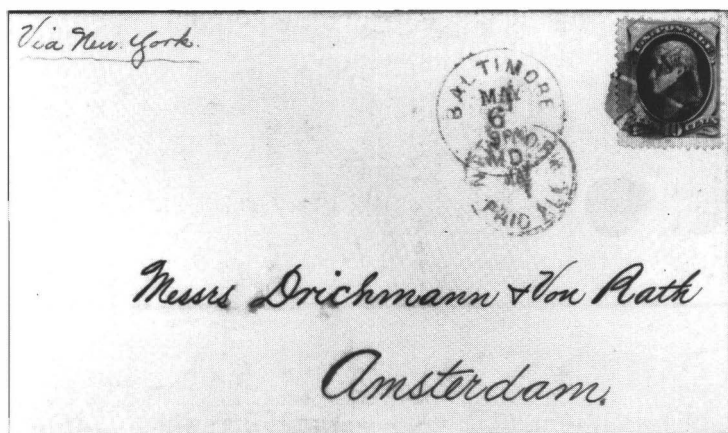 Via New York.
BALTIMORE
MAY
6
MD.
NEW YORK
PAID ALL
Messrs Drichmann & Von Rath
Amsterdam.